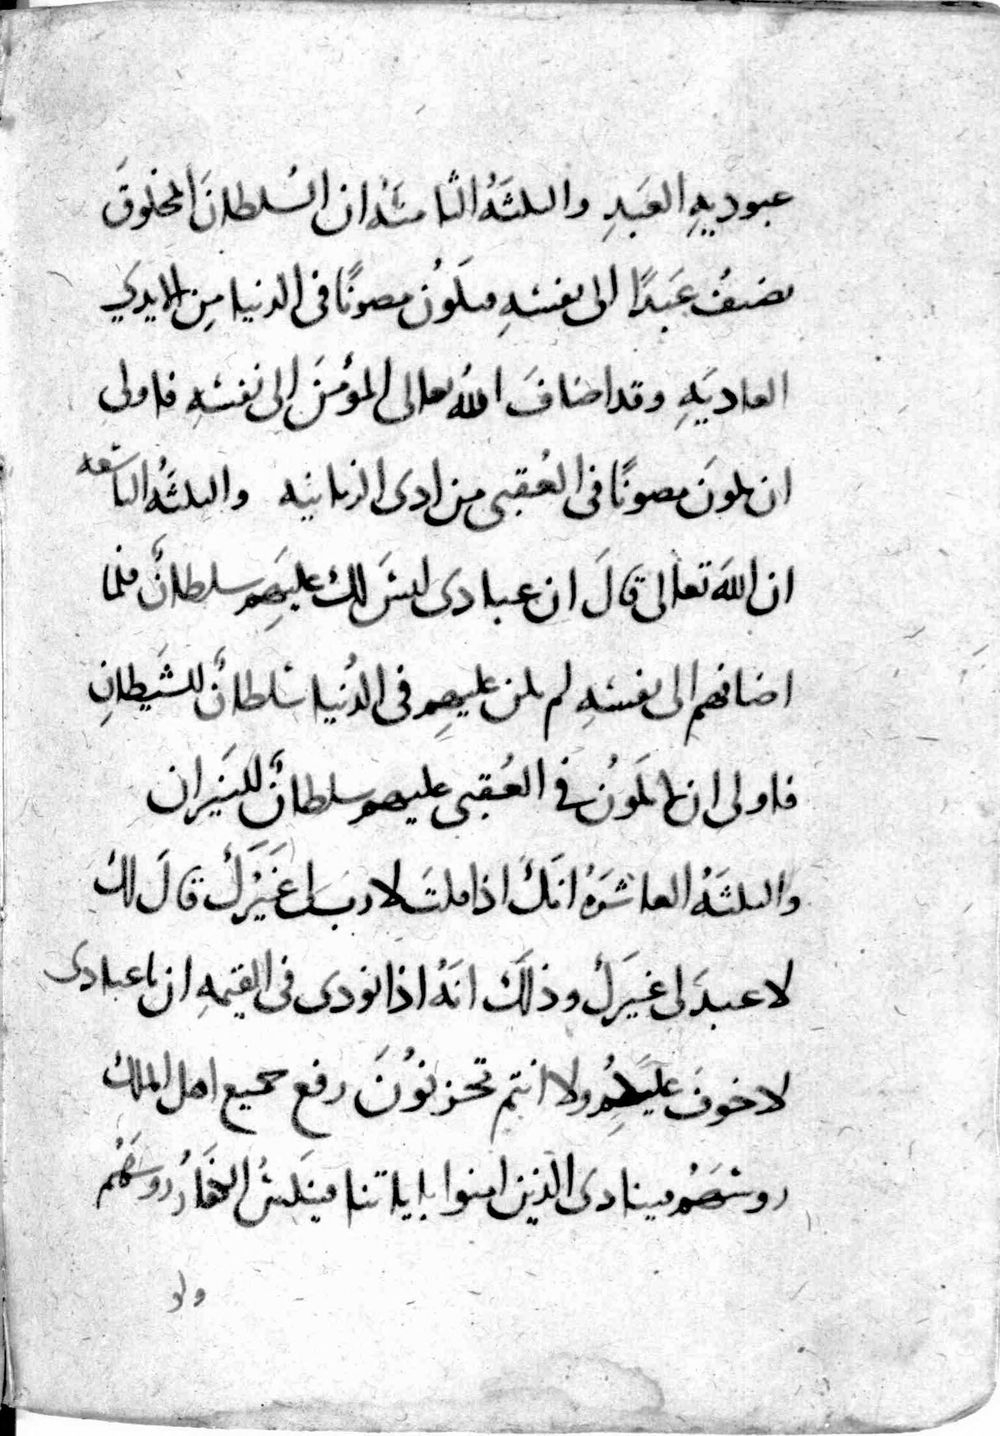 عبوديه العَبدِ والنكتَةُ الثامنَهُ ان السُلطانَ المخلوقَ
يضيفُ عَبدًا الى نفسهِ فيكَوُن مصونًا فى الدنيا مِن الايدي
العاديَهِ وقد اضافَ اللهُ تعالى المؤمنَ إلى نفسهِ فاولى
ان يكونَ مصونًا فى العُقبى من ايدى الزبانيَه والنكتَهُ التاسعه
ان اللهَ تعالى قالَ ان عبادى ليسَ لكَ عليهِم سلطانٌ فلما
اضافهم الى نفسهِ لم يكن عليهِم فى الدُنيا سُلطانٌ للشَيطانِ
فاولى ان لا يكَوُن في العُقبى عليهم سلطانٌ للنيَران
والنكتَهُ العاشرَهُ انَكَ اذا قلتَ لا ربَ لى غَيْرَكَ قالَ لكَ
لا عبدَ لى غيرَكَ وذلَكَ انَهُ اذا نودى فى القيمهِ ان يا عبادى
لا خوفَ عليكُم ولا انتم تحزنوُنَ رفع جميع اهل الملك
روسَهُم فينادى الذين امنوا بايٰاتنا فينكسُ الكفَارُ روسَهُم
ولو